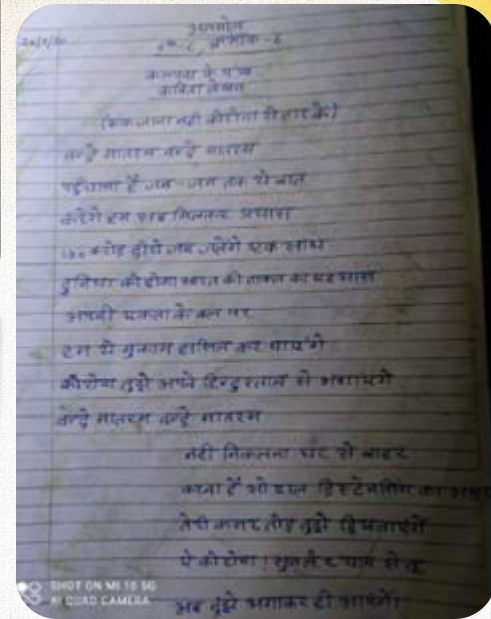 कल्पना के पंख
कविता लेखन
वन्दे मातरम वन्दे मातरम
पहुँचाना है जन-जन तक ये बात
करेंगे हम सब मिलकर प्रयास
करोड़ दीये जब जलेंगे एक साथ
दुनिया को होगा भारत की ताकत का एहसास
अपनी एकता के बल पर
हम ये मुकाम हासिल कर पाएंगे
कोरोना तुझे अपने हिन्दुस्तान से भगाएंगे
वन्दे मातरम वन्दे मातरम
नही निकलना घर से बाहर
करना है सोशल डिस्टेनसिंग का
तेरी कमर तोड़ तुझे
ऐ कोरोना ! सुनले
अब तुझे भगाकर ही मानेंगे।
SHOT ON MI 10 5G
AI QUAD CAMERA